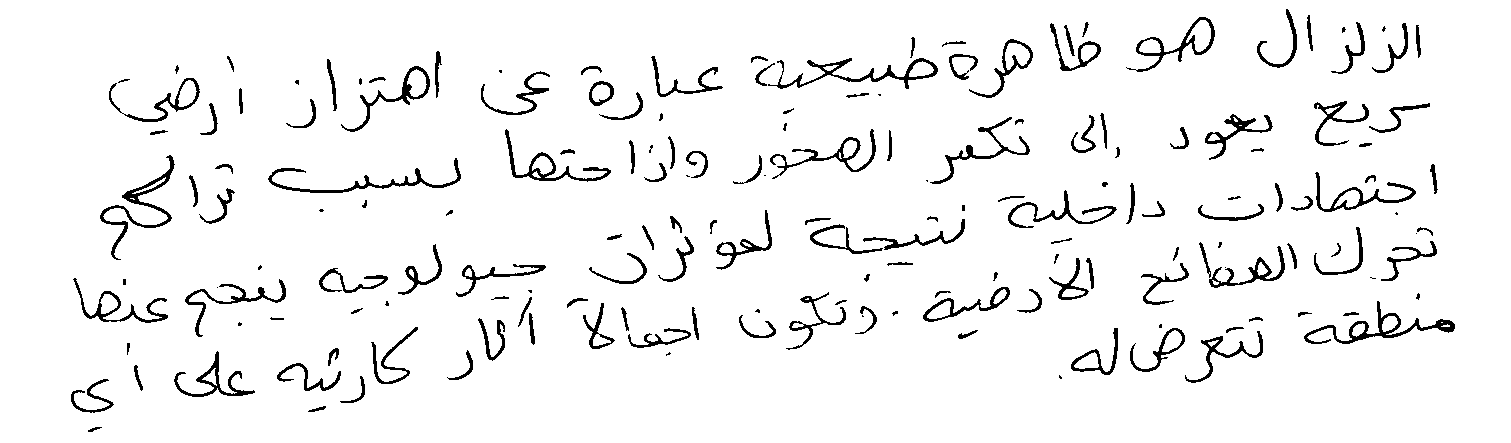 الزلزال هو ظاهرة طبيعية عبارة عن اهتزاز أرضي
سريع يعود إلى تكسر الصخور وإزاحتها بسبب تراكم
اجتهادات داخلية نتيجة لمؤثرات جيولوجيه ينجم عنها
تحرك الصفائح الأرضية. وتكون اجمالاً آثار كارثيه على أي
منطقة تتعرض له.